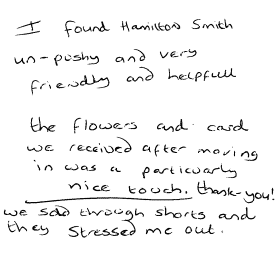 I found Hamilton Smith
un-pushy and very
friendly and helpfull
the flowers and card
we received after moving
in was a particuarly
nice touch. thank-you!
we sold through shorts and
they stressed me out.